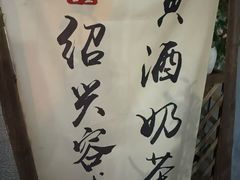 黄酒奶茶
绍兴容